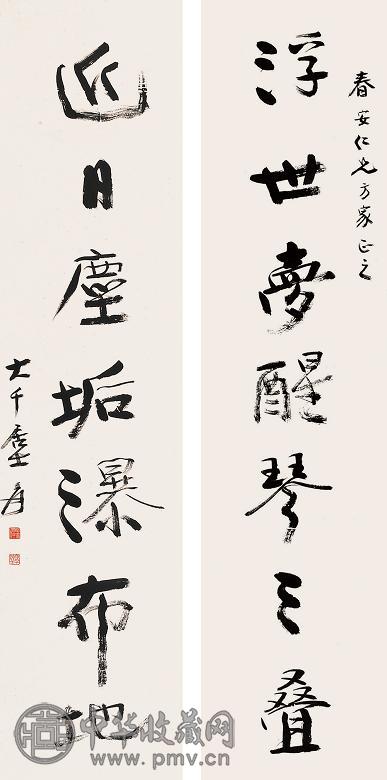 春安仁兄方家正之
浮世夢醒琴三叠
近日塵垢瀑布地
大千居士爰
中华收藏网
www.pmv.cn